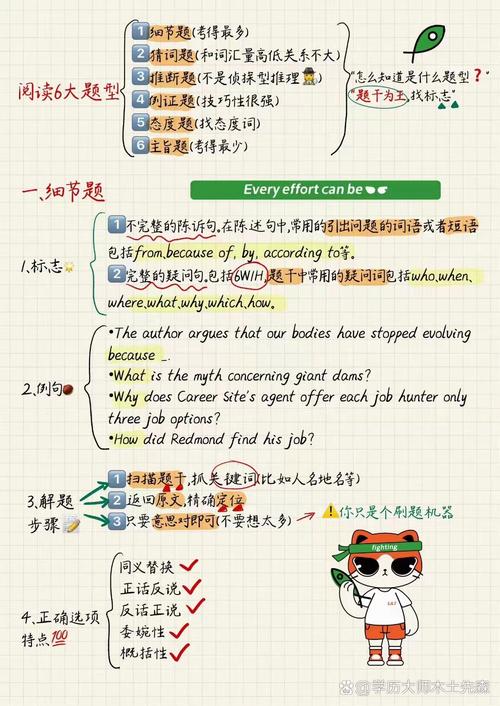 阅读6大题型
1 细节题(考得最多)
2 猜词题(和词汇量高低关系不大)
3 推断题(不是侦探型推理)
4 例证题(技巧性很强)
5 态度题(找态度词)
6 主旨题(考得最少)
"怎么知道是什么题型?"
"题干为王,找标志"
一.细节题
Every effort can be
1.标志
1 不完整的陈诉句。在陈述句中,常用的引出问题的词语或者短语
包括from,because of, by, according to等。
2 完整的疑问句。包括6W1H,题干中常用的疑问词包括who,when,
where,what,why,which,how。
2.例句
•The author argues that our bodies have stopped evolving
because _.
•What is the myth concerning giant dams?
•Why does Career Site's agent offer each job hunter only
three job options?
•How did Redmond find his job?
3.解题
步骤
1 扫描题干,抓关键词(比如人名地名等)
2 返回原文,精确定位
3 只要意思对即可(不要想太多)
你只是个刷题机器
4.正确选项
特点100
同义替换
正话反说
反话正说
委婉性
概括性
fighting
@学历大师木土先森